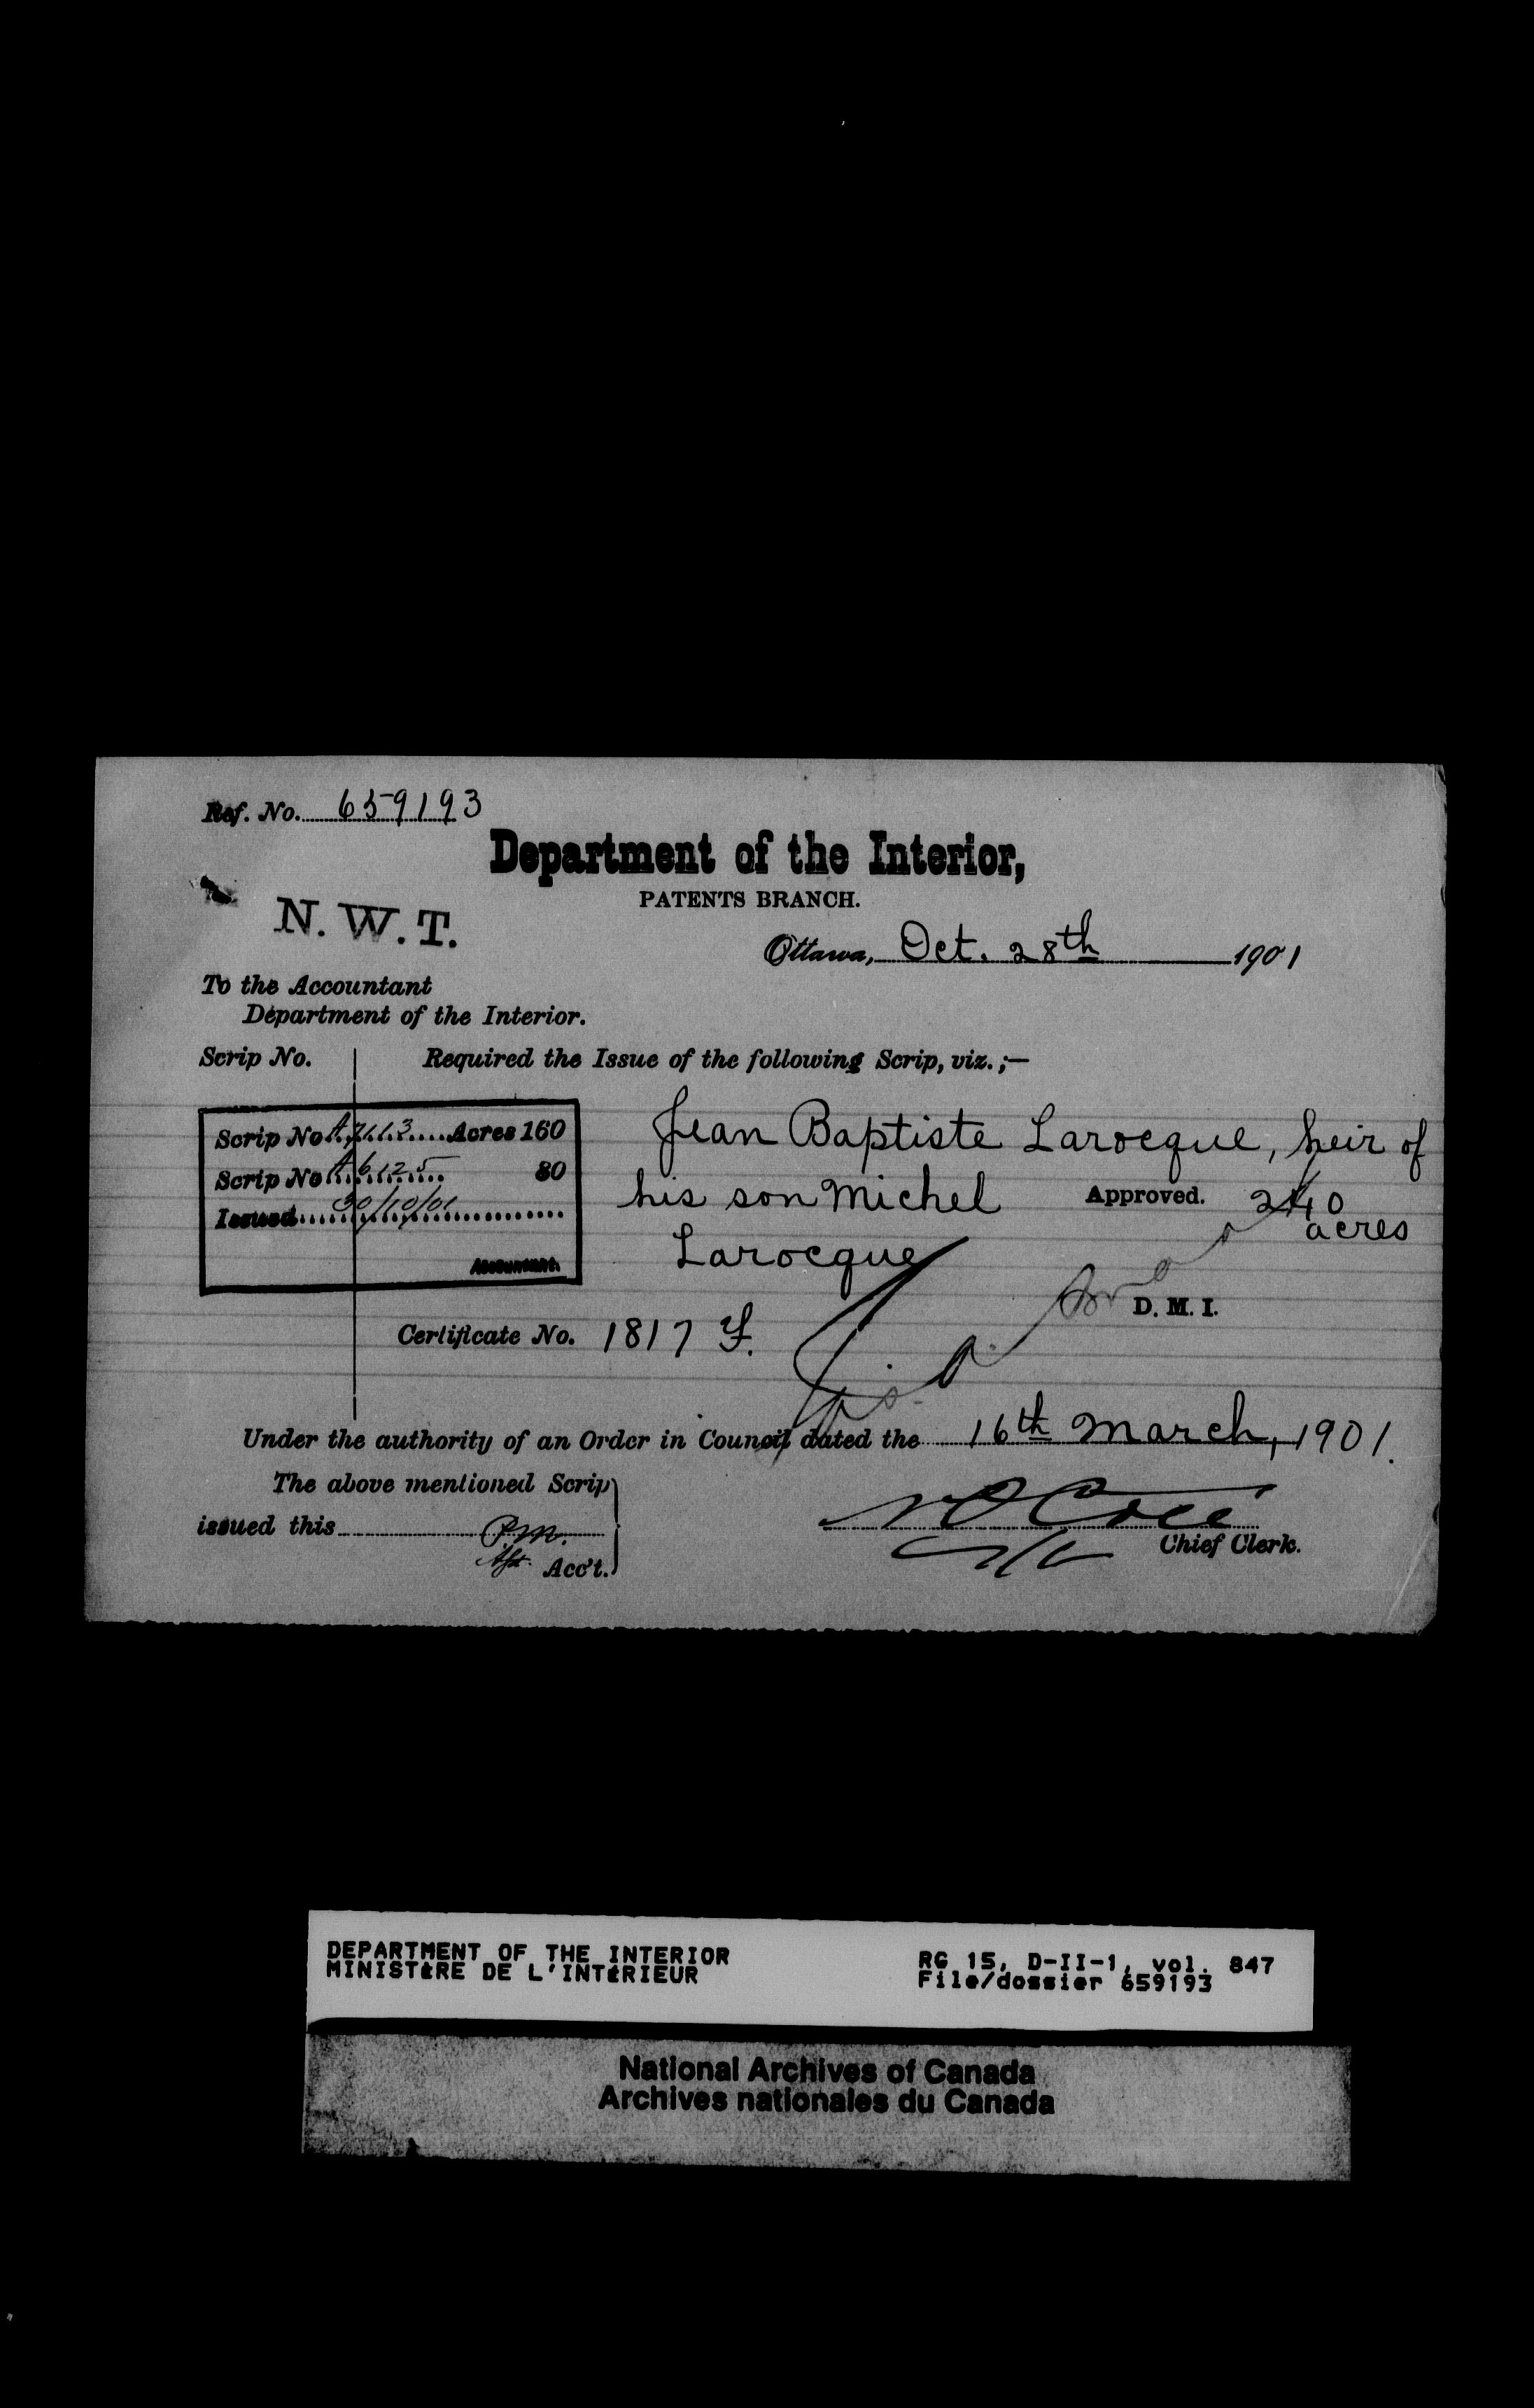 Ref. No. 659193
Department of the Interior,
PATENTS BRANCH.
N. W. T.
Ottawa, Oct. 28th 1901
To the Accountant
Department of the Interior.
Scrip No. Required the Issue of the following Scrip, viz.;—
Scrip No Acres 160
Scrip No A 6125 80
Issued 30/10/01
Accountant.
Jean Baptiste Larocque, heir of
his son Michel Approved. 240
acres
Larocque
D. M. I.
Certificate No. 1817 F.
Under the authority of an Order in Council dated the 16th March, 1901.
The above mentioned Scrip
issued this P.M.
Acc't.
Chief Clerk.
DEPARTMENT OF THE INTERIOR RG 15, D-II-1, vol. 847
MINISTÈRE DE L'INTÉRIEUR File/dossier 659193
National Archives of Canada
Archives nationales du Canada